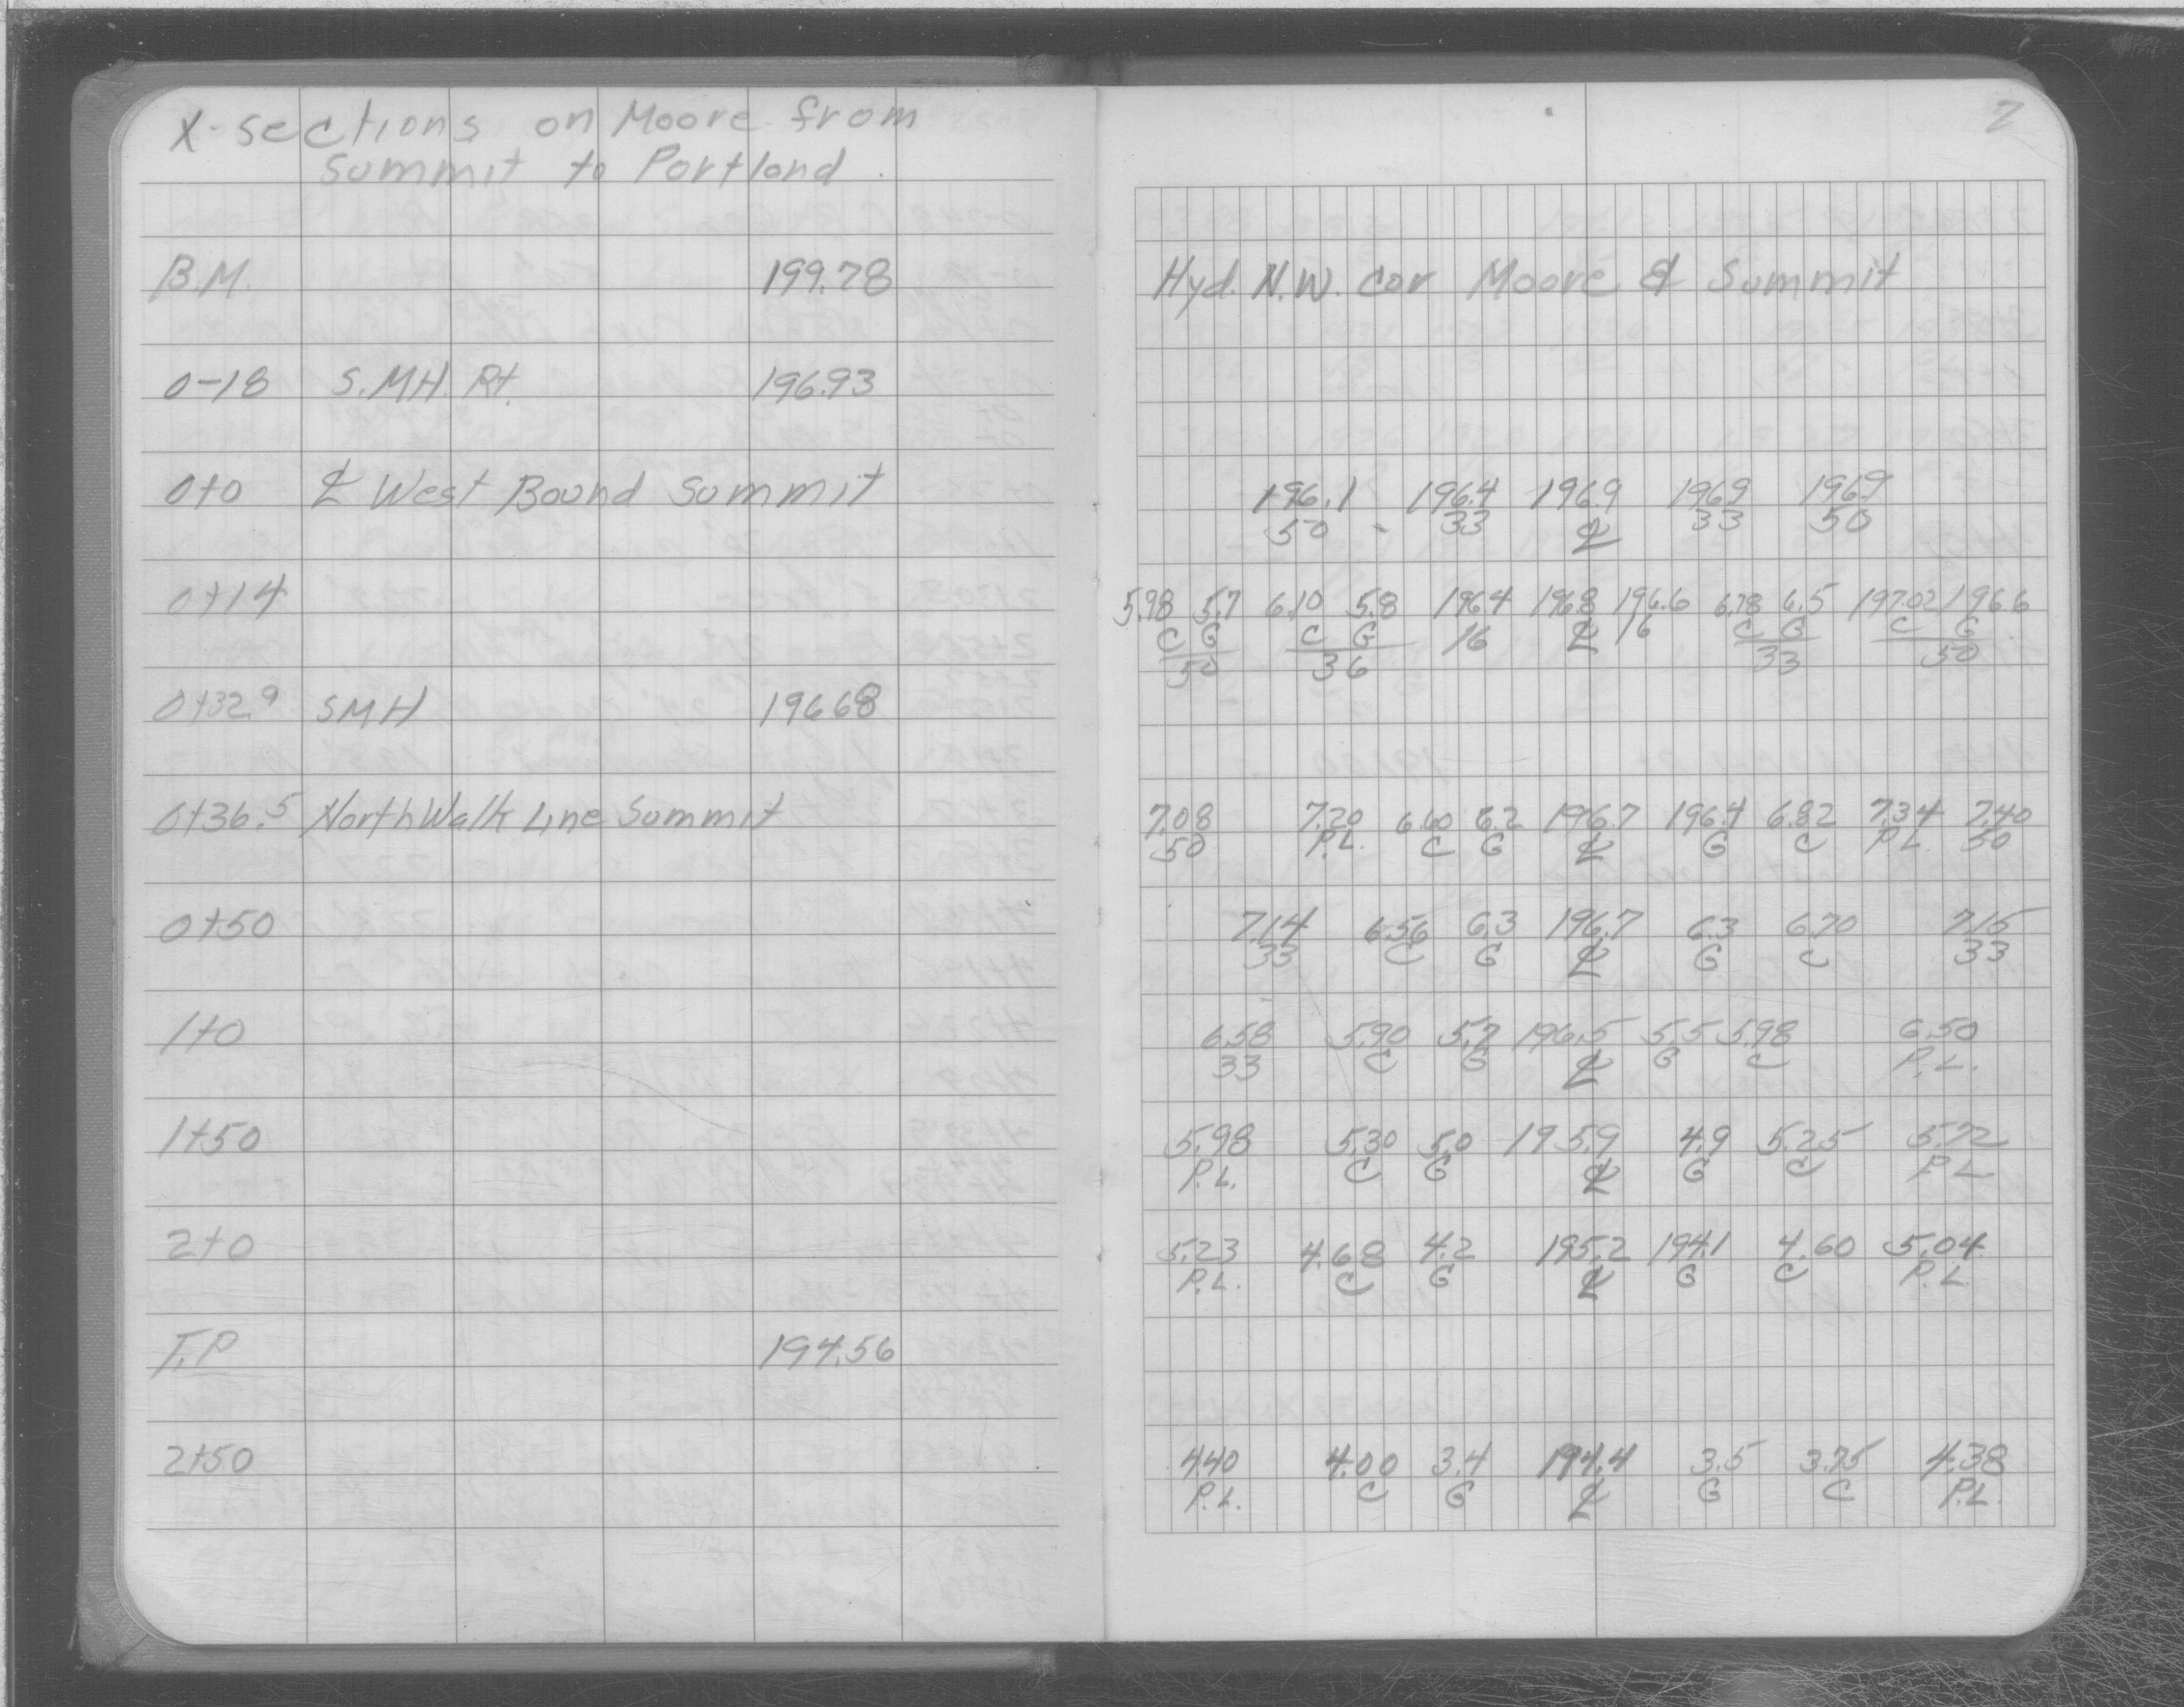 X-sections on Moore from
Summit to Portland
B.M. 199.78
0-18 S.MH. Rt. 196.93
0+0 ℄ West Bound Summit
0+14
0+32.9 SMH 196.68
0+36.5 North Walk Line Summit
0+50
1+0
1+50
2+0
T.P 194.56
2+50
Hyd. N.W. cor Moore & Summit
196.1 196.4 196.9 196.9 196.9
50 33 ℄ 33 50
5.98 5.7 6.10 5.8 196.4 196.8 196.6 6.78 6.5 197.02 196.6
C G C G 16 ℄ 16 C G C G
50 36 33 50
7.08 7.20 6.60 6.2 196.7 196.4 6.82 7.34 7.40
50 P.L. C G ℄ G C P.L. 50
7.14 6.56 6.3 196.7 6.3 6.70 7.15
33 C G ℄ G C 33
6.58 5.90 5.7 196.5 5.5 5.98 6.50
33 C G ℄ G C P.L.
5.98 5.30 5.0 195.9 4.9 5.25 5.72
P.L. C G ℄ G C P.L
5.23 4.68 4.2 195.2 194.1 4.60 5.04
P.L. C G ℄ G C P.L
4.40 4.00 3.4 194.4 3.5 3.75 4.38
P.L. C G ℄ G C P.L.